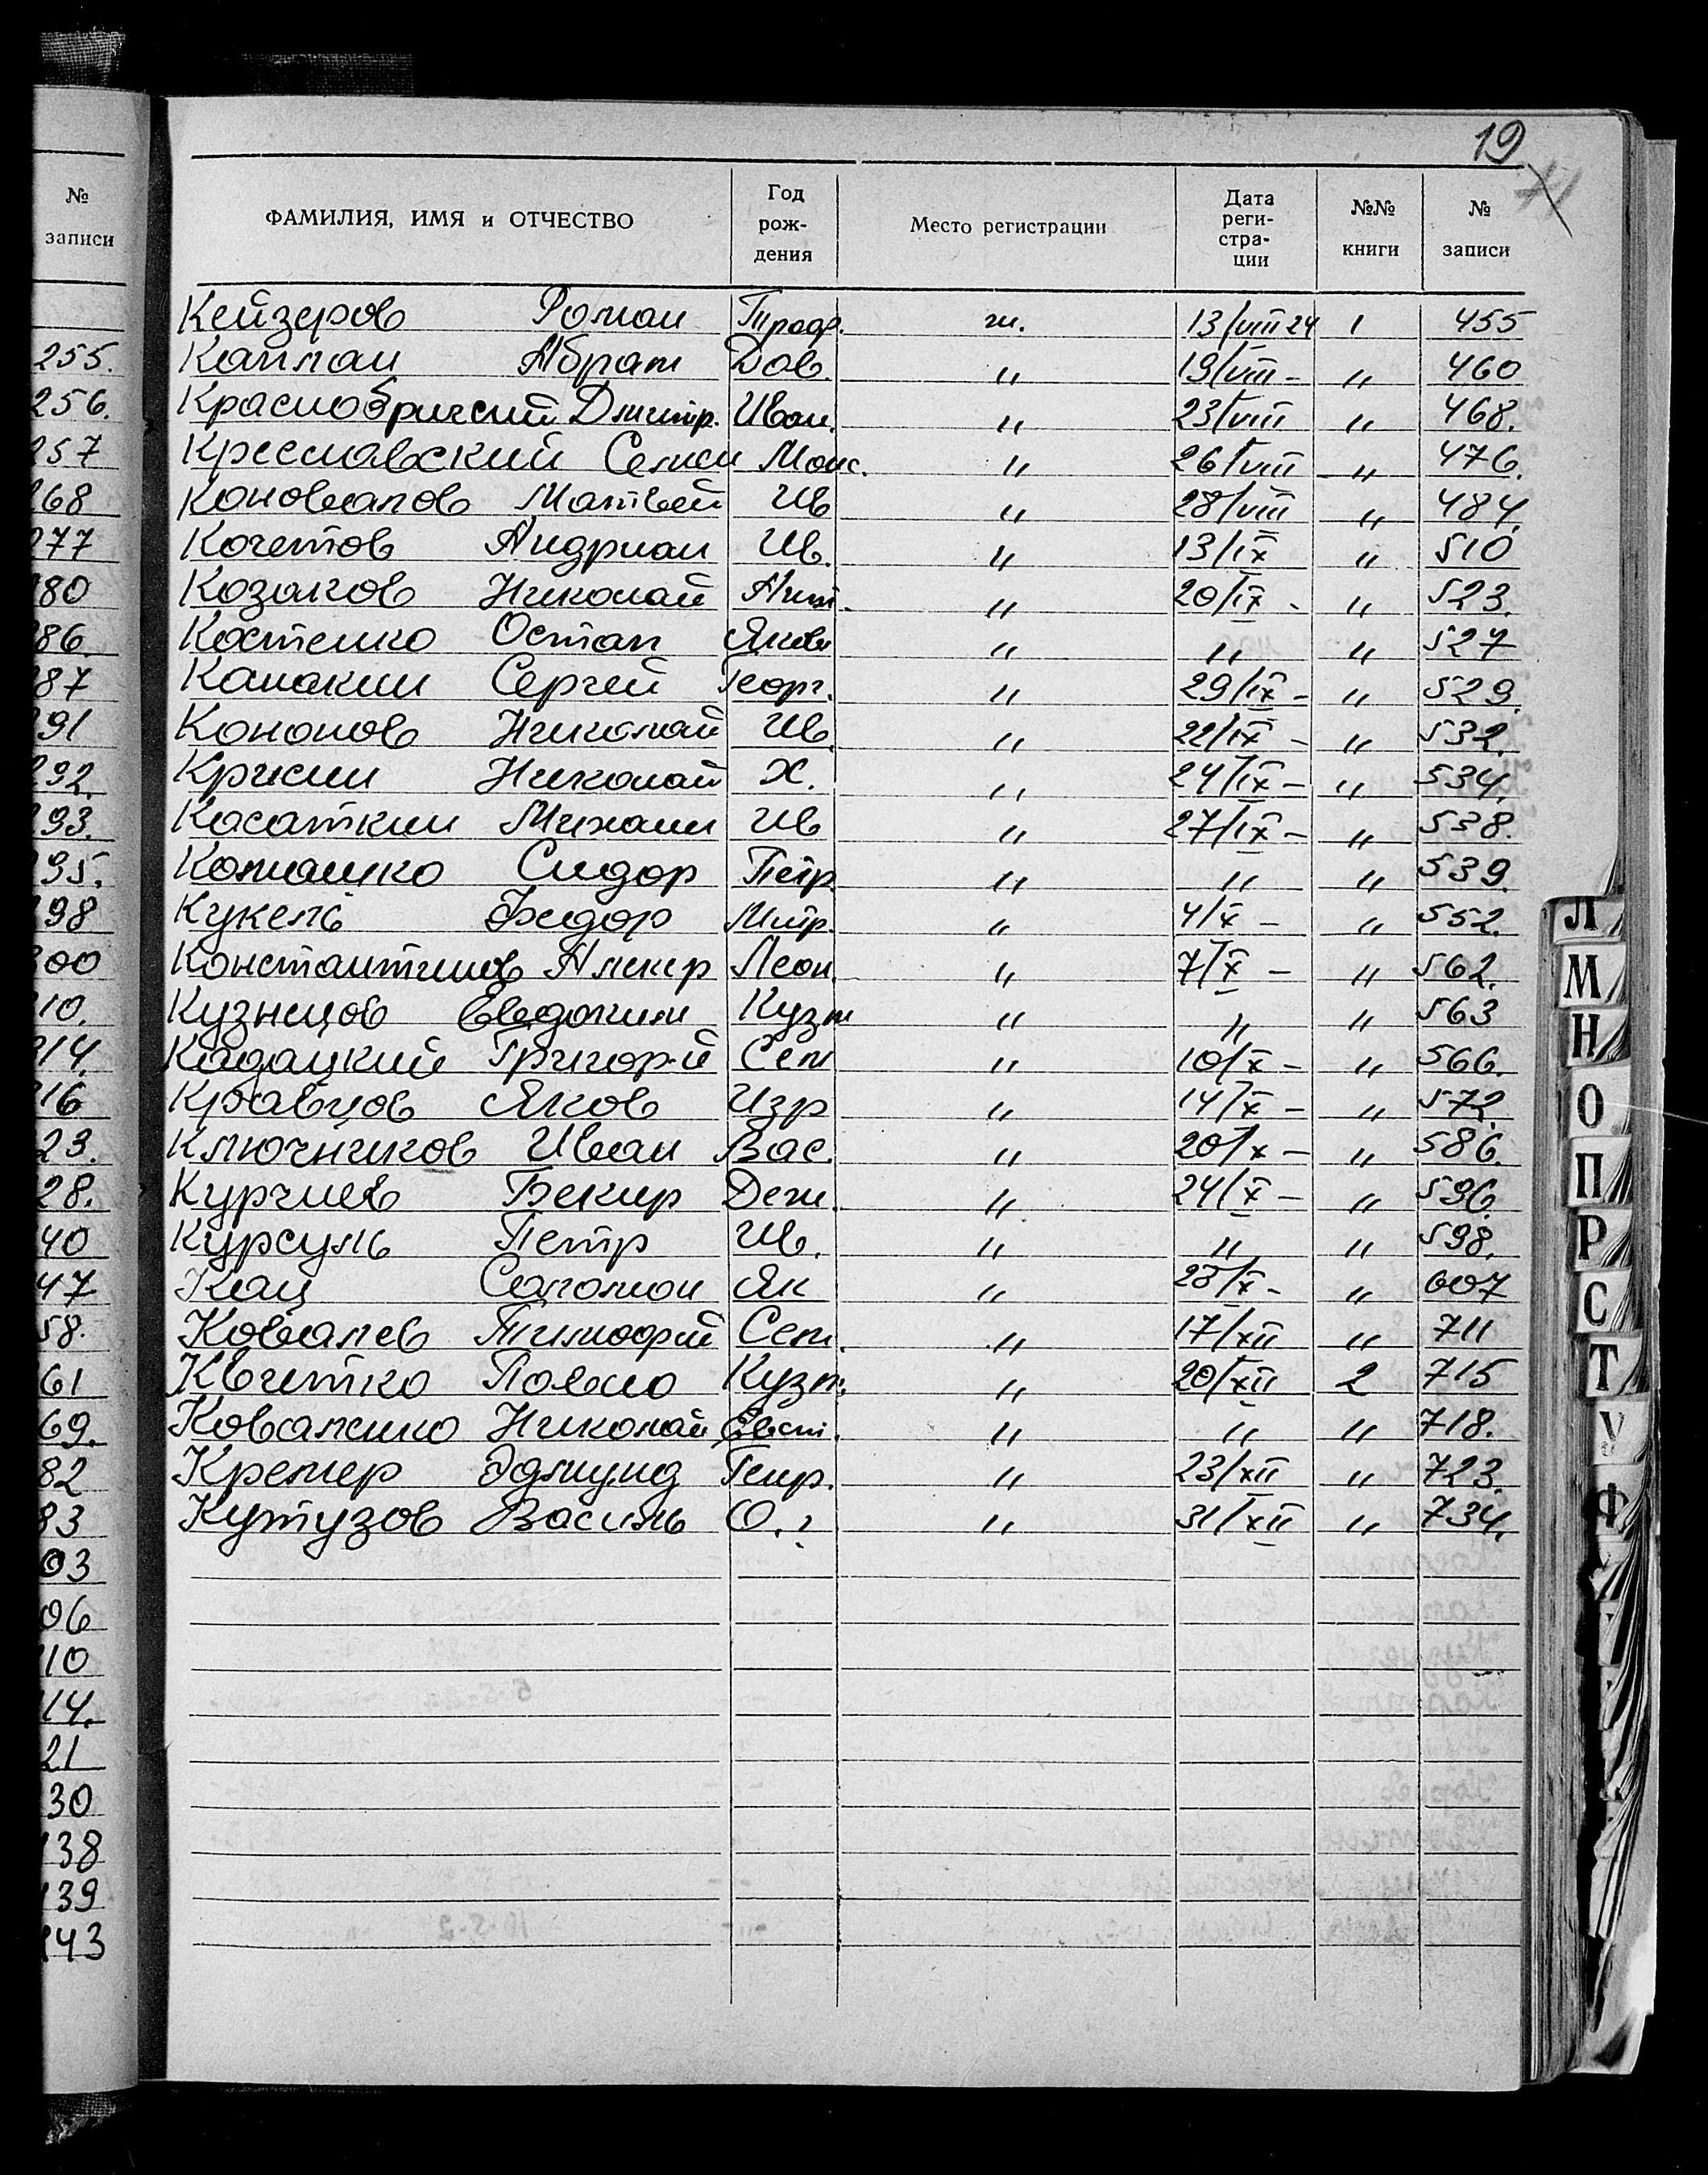 19
№ записи
ФАМИЛИЯ, ИМЯ и ОТЧЕСТВО Год рож- дения Место регистрации Дата реги- стра- ции №№ книги № записи
Кейзеров Роман ж. 13/VIII 24 1 455
255. Каплан Абрам Дов. " 19/VIII - " 460
256. Дмитр. Иван. " 23/VIII " 468.
257 Креславский Семен Моис. " 26/VIII " 476.
268 Коновалов Матвей Ив " 28/VIII " 484.
277 Кочетов Андриан Ив. " 13/IX " 510
80 Козаков Николай " 20/IX - " 523.
86. Костенко Остап Яковл " " " 527
87 Канакин Сергей Георг. " 29/IX - " 529.
91 Кононов Николай Ив. " 22/IX - " 532.
292. Николай Х. " 24/IX - " 534.
93. Касаткин Михаил Ив " 27/IX - " 538.
95. Сидор Петр " " " 539.
98 Кукель Федор Митр. " 4/X - " 552.
300 Константинов Алекср Леон. " 7/X - " 562.
10. Кузнецов Евдоким Кузм " " " 563
14. Кадацкий Григорий Сем " 10/X - " 566.
16 Кравцов Яков Изр " 14/X - " 572.
23. Ключников Иван Вас. " 20/X - " 586.
28. Курчиев Бекир Деж. " 24/X - " 596.
40 Курсуль Петр Ив. " " " 598.
47 Кац Соломон Як " 28/X - " 607
58. Ковалев Тимофей Сем. " 17/XII " 711
61 Квитко Павло Кузм. " 20/XII 2 715
69. Коваленко Николай Евст. " " " 718.
82 Кремер Эдмунд Генр. " 23/XII " 723.
83 Кутузов Василь О.? " 31/XII " 734.
03
06
10
14.
21
30
38
39
43
Л
М
Н
О
П
Р
С
Т
У
Ф